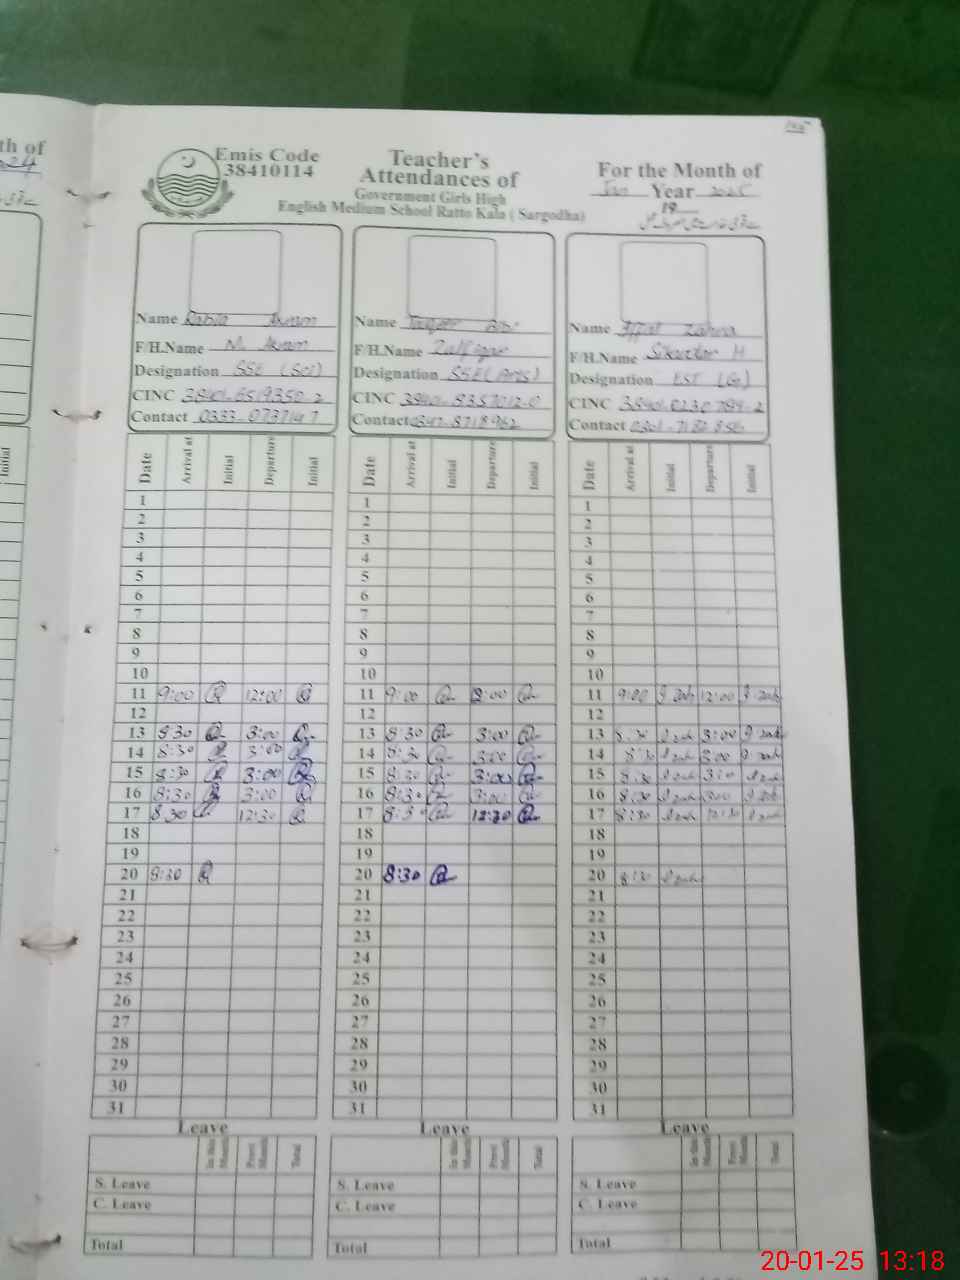 th of
24
Initial
Emis Code
38410114
Teacher's
Attendances of
Government Girls High
English Medium School Ratto Kala ( Sargodha)
For the Month of
Jan Year 2025
19
Name Rabia Akram
F/H.Name M. Akram
Designation SSE (Sci)
CINC
Contact 0333-0737147
Name
F/H.Name Zulfiqar
Designation SSE (Arts)
CINC 38401-8357012-0
Contact 0347-8718962
Name Iffat Zahra
F/H.Name Sikandar H
Designation EST (G)
CINC
Contact
Date Arrival at Initial Departure Initial Date Arrival at Initial Departure Initial Date Arrival at Initial Departure Initial
1 1 1
2 2 2
3 3 3
4 4 4
5 5 5
6 6 6
7 7 7
8 8 8
9 9 9
10 10 10
11 9:00 12:00 11 9:00 12:00 11 9:00 12:00
12 12 12
13 8:30 3:00 13 8:30 3:00 13 8:30 3:00
14 8:30 3:00 14 8:30 3:00 14 8:30 3:00
15 8:30 3:00 15 8:30 3:00 15 8:30 3:00
16 8:30 3:00 16 8:30 3:00 16 8:30 3:00
17 8:30 12:30 17 8:30 12:30 17 8:30 12:30
18 18 18
19 19 19
20 8:30 20 8:30 20 8:30
21 21 21
22 22 22
23 23 23
24 24 24
25 25 25
26 26 26
27 27 27
28 28 28
29 29 29
30 30 30
31 31 31
Leave Leave Leave
In this Month Prevl Month Total In this Month Prevl Month Total In this Month Prevl Month Total
S. Leave S. Leave S. Leave
C. Leave C. Leave C. Leave
Total Total Total
20-01-25 13:18